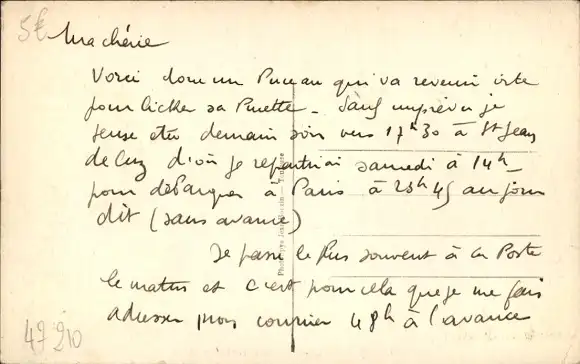 5€
Ma chérie
Voici donc un Puceau qui va revenir vite
pour lécher sa Pucette - Sauf imprévu je
pense être demain soir vers 17h30 à St Jean
de Luz d'où je repartirai samedi à 14h -
pour débarquer à Paris à 23h45 au jour
dit (sans avance)
Je passe le plus souvent à la Poste
le matin et c'est pour cela que je me fais
adresser mon courrier 48h à l'avance
47210